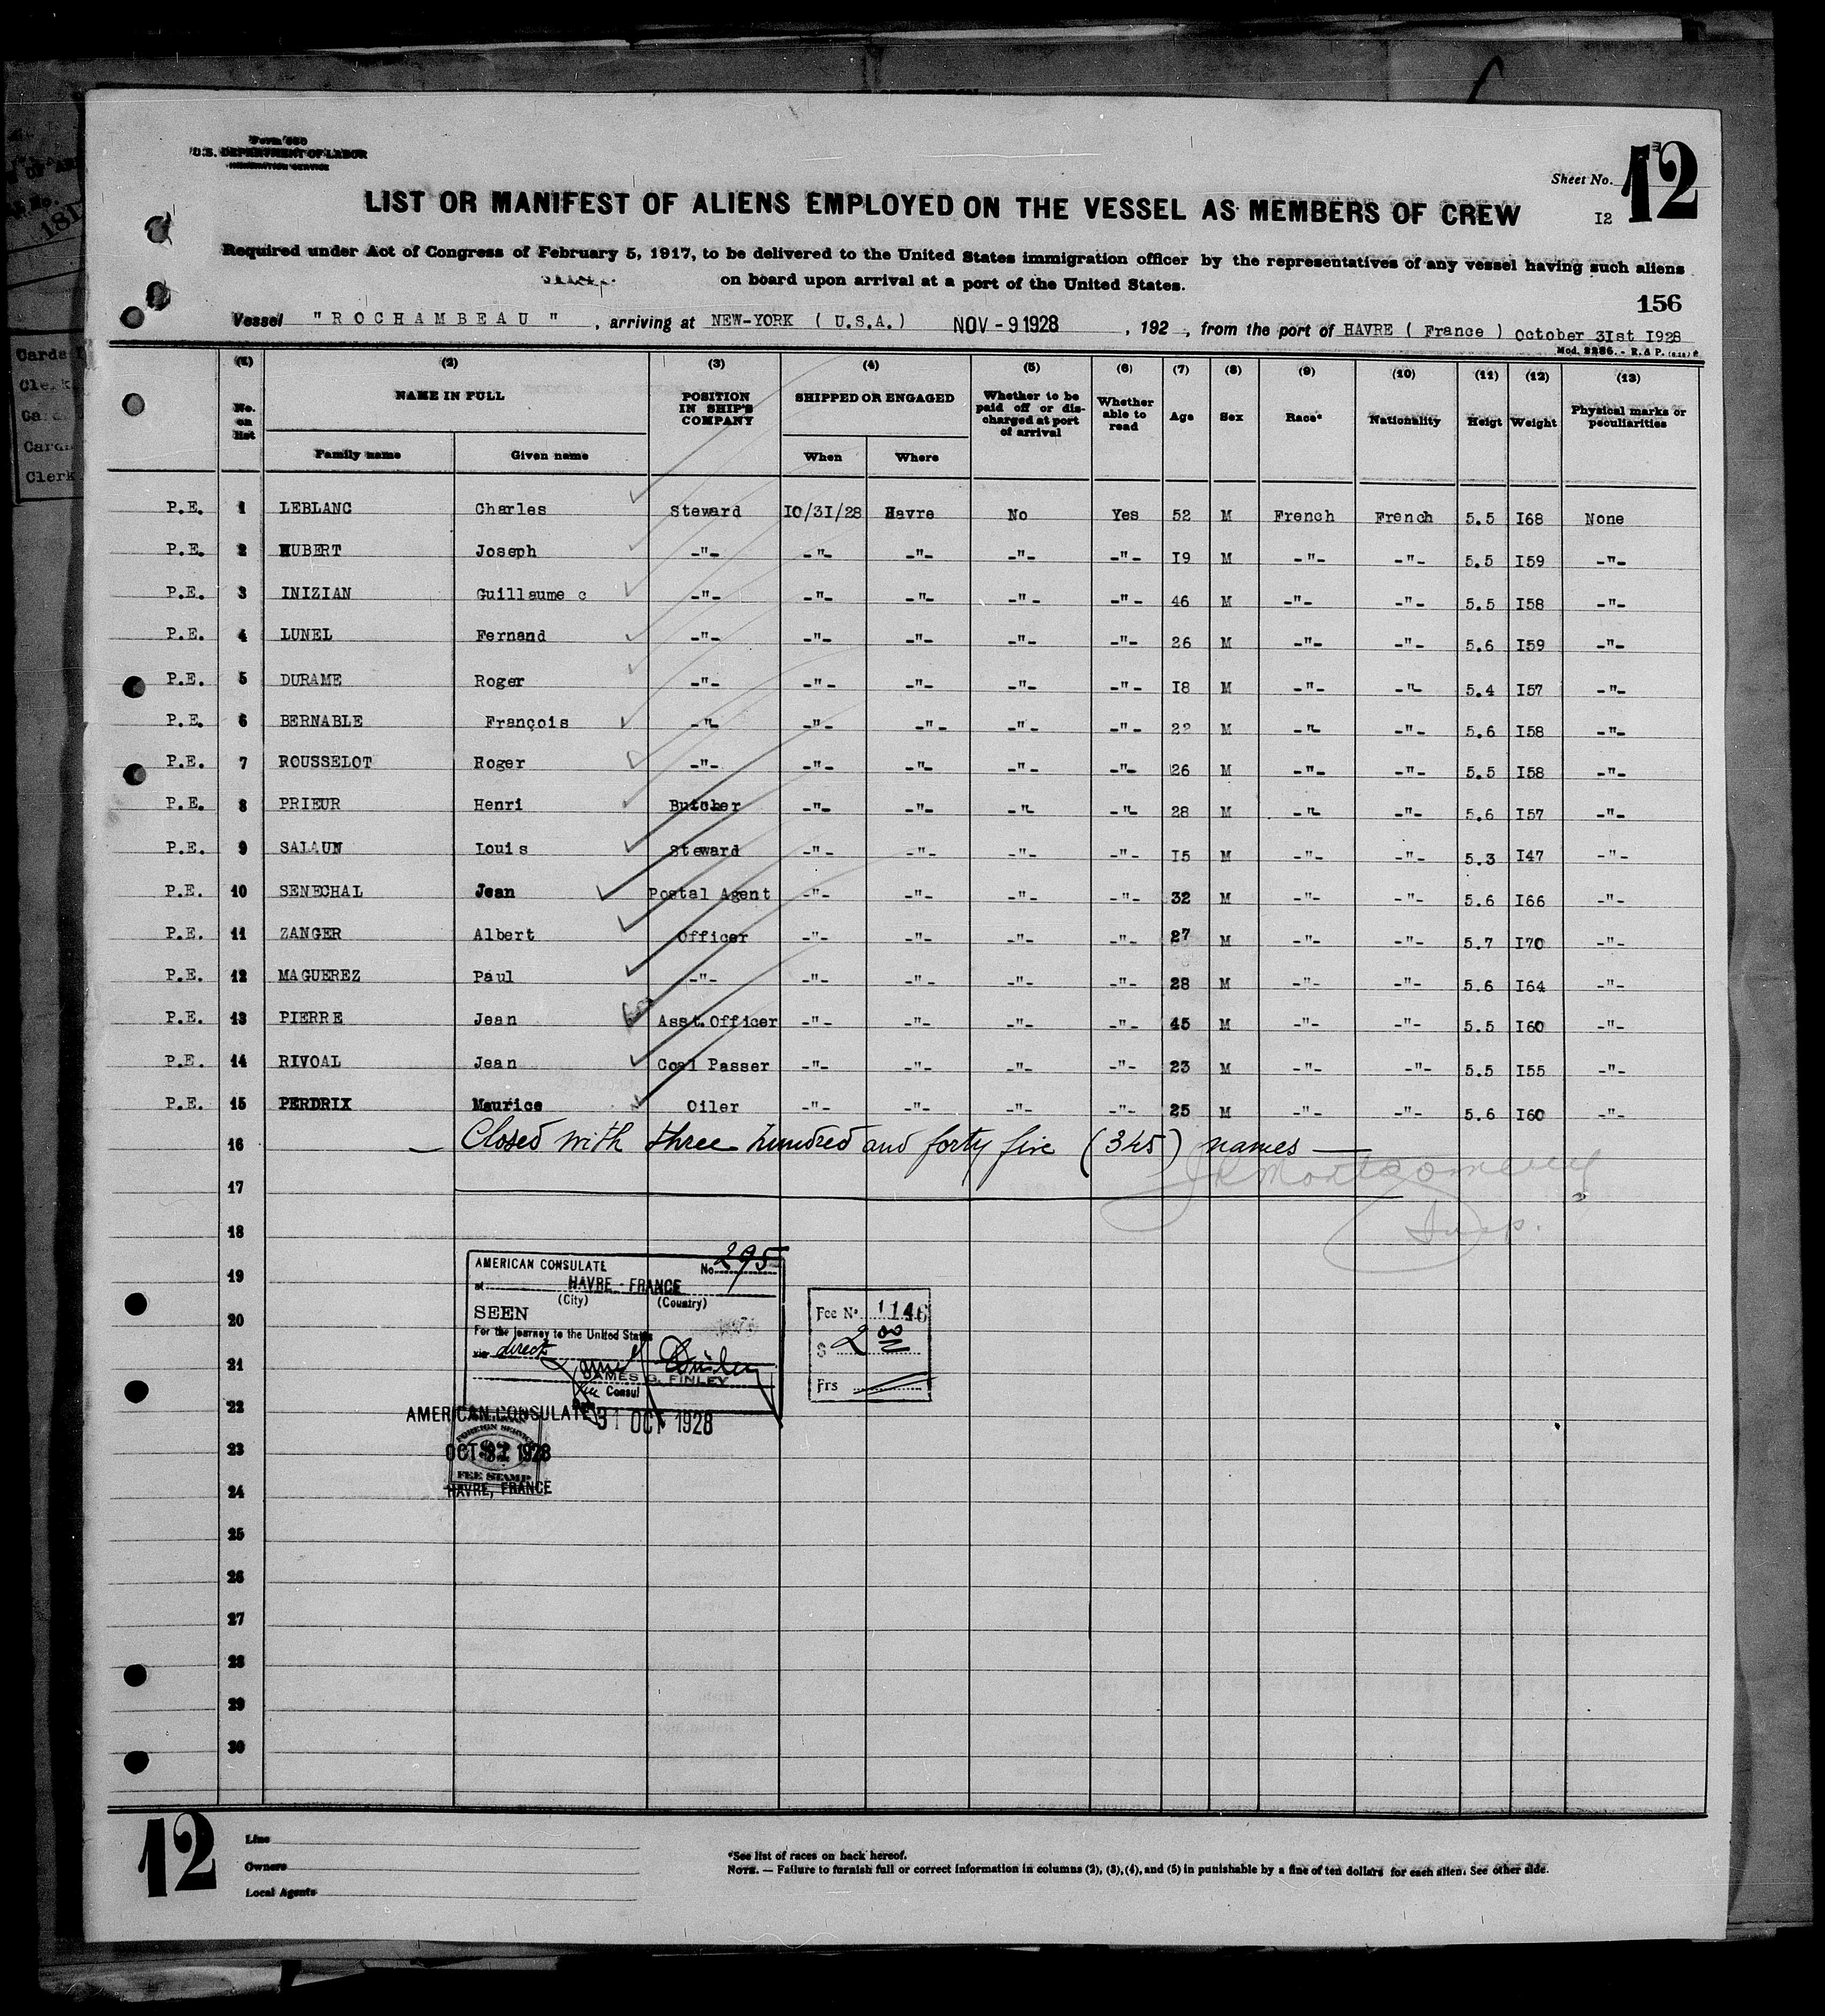 Form 680
U.S. DEPARTMENT OF LABOR
IMMIGRATION SERVICE
Sheet No. 12
I2
LIST OR MANIFEST OF ALIENS EMPLOYED ON THE VESSEL AS MEMBERS OF CREW
Required under Act of Congress of February 5, 1917, to be delivered to the United States immigration officer by the representatives of any vessel having such aliens
on board upon arrival at a port of the United States.
156
Vessel "ROCHAMBEAU", arriving at NEW-YORK ( U.S.A.) NOV - 9 1928, 192 , from the port of HAVRE ( France ) October 3Ist I928
Mod. 2286. - R. & P.
(1) (2) (3) (4) (5) (6) (7) (8) (9) (10) (11) (12) (13)
No. on list NAME IN FULL POSITION IN SHIP'S COMPANY SHIPPED OR ENGAGED Whether to be paid off or discharged at port of arrival Whether able to read Age Sex Race* Nationality Heigt Weight Physical marks or peculiarities
Family name Given name When Where
P.E. 1 LEBLANC Charles Steward I0/3I/28 Havre No Yes 52 M French French 5.5 I68 None
P.E. 2 HUBERT Joseph -"- -"- -"- -"- -"- I9 M -"- -"- 5.5 I59 -"-
P.E. 3 INIZIAN Guillaume c -"- -"- -"- -"- -"- 46 M -"- -"- 5.5 I58 -"-
P.E. 4 LUNEL Fernand -"- -"- -"- -"- -"- 26 M -"- -"- 5.6 I59 -"-
P.E. 5 DURAME Roger -"- -"- -"- -"- -"- I8 M -"- -"- 5.4 I57 -"-
P.E. 6 BERNABLE François -"- -"- -"- -"- -"- 22 M -"- -"- 5.6 I58 -"-
P.E. 7 ROUSSELOT Roger -"- -"- -"- -"- -"- 26 M -"- -"- 5.5 I58 -"-
P.E. 8 PRIEUR Henri Butcher -"- -"- -"- -"- 28 M -"- -"- 5.6 I57 -"-
P.E. 9 SALAUN Louis Steward -"- -"- -"- -"- I5 M -"- -"- 5.3 I47 -"-
P.E. 10 SENECHAL Jean Postal Agent -"- -"- -"- -"- 32 M -"- -"- 5.6 I66 -"-
P.E. 11 ZANGER Albert Officer -"- -"- -"- -"- 27 M -"- -"- 5.7 I70 -"-
P.E. 12 MAGUEREZ Paul -"- -"- -"- -"- -"- 28 M -"- -"- 5.6 I64 -"-
P.E. 13 PIERRE Jean Asst.Officer -"- -"- -"- -"- 45 M -"- -"- 5.5 I60 -"-
P.E. 14 RIVOAL Jean Coal Passer -"- -"- -"- -"- 23 M -"- -"- 5.5 I55 -"-
P.E. 15 PERDRIX Maurice Oiler -"- -"- -"- -"- 25 M -"- -"- 5.6 I60 -"-
16 — Closed with three hundred and forty five (345) names —
Montgomery
17
18
Insp.
AMERICAN CONSULATE No. 295
19
at HAVRE - FRANCE
(City) (Country)
SEEN
20
For the journey to the United States
via direct
21
JAMES G. FINLEY
Consul
22
Fee No. 1146
$ 2 00
Frs
AMERICAN CONSULATE 31 OCT 1928
FOREIGN SERVICE
23
OCT 31 1928
FEE STAMP
HAVRE, FRANCE
24
25
26
27
28
29
30
12
Line
Owners
Local Agents
*See list of races on back hereof.
NOTE. — Failure to furnish full or correct information in columns (2), (3), (4), and (5) in punishable by a fine of ten dollars for each alien. See other side.
Cards
Clerk
Card
Clerk
181